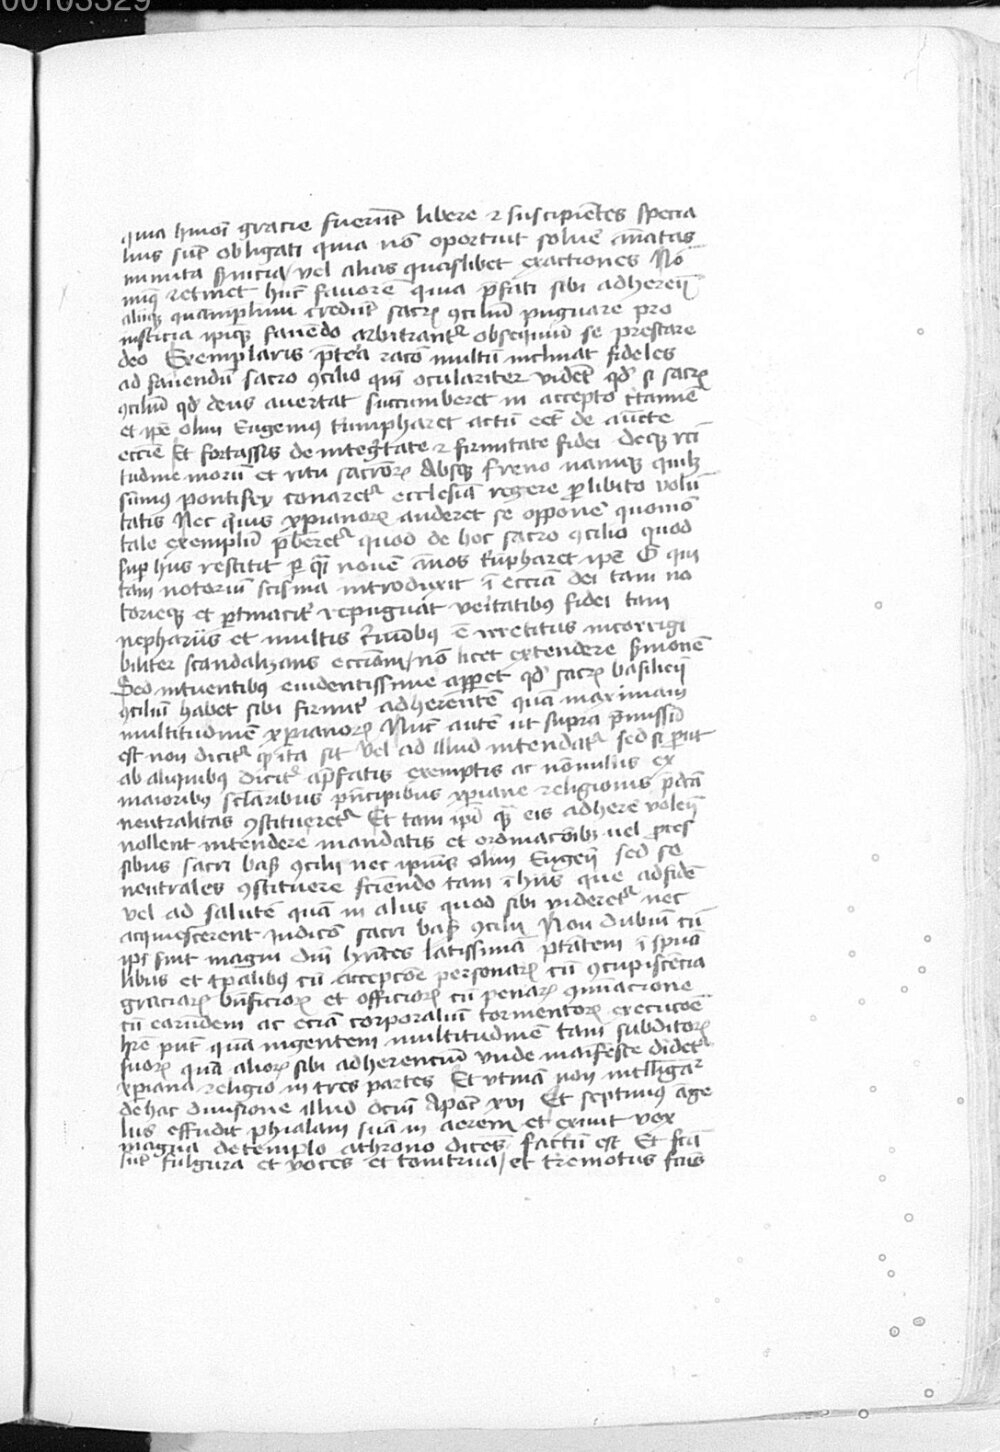 00103329
quia hmoī gracie fuerūt libere ⁊ suscipiētes specia
lius sūt obligati quia nō oportuit soluē ānatas
minuta s̄uicia / vel alias quaslibet exactiones Nō
nūq̄ retinet hūc fauorē quia p̄fati sibi adherēn̄
aliiqꝫ quamplurimi credūt sacrū ꝯciliū pugnare pro
iusticia ipiqꝫ fauēdo arbitrantʳ obsequiū se prestare
deo Exemplaris p̄tea racō multū inclinat fideles
ad fauendū sacro ꝯcilio qm̄ oculariter vidēt qd̄ si sacrū
ꝯciliū qd̄ deus auertat succumberet in accepto c̄tamīe
et ip̄e olim Eugenius triumpharet actū eēt de auc̄te
eccīe Et fortassis de integritate ⁊ firmitate fidei deqꝫ rc̄i
tudine morū et ritu sacrorꝝ Absqꝫ freno namqꝫ quilꝫ
sūmus pontifex conaretʳ ecclesiā regere ꝓ libito volū
tatis Nec q̄uis xp̄ianorꝝ auderet se opponē quomō
tale exemplū p̄beretʳ quod de hoc sacro ꝯcilio quod
sup̄ hiis restitit ꝑ q̄si nouē ānos triūpharet ip̄e G qui
tam notoriū scisma introduxit ī eccīa dei tam no
torieqꝫ et ꝑtinacit̄ repugnat veritatibꝰ fidei tam
nephariis et multis c̄minibꝰ ē irretitus incorrigi
biliter scandalizans eccīam / nō licet extendere s̄monē
Sed intuentibꝰ euidentissime apparet qd̄ sacrū basilieñ
ꝯciliū habet sibi firmit̄ adherentē quā maximam
multitudinē xp̄ianorꝝ Nūc autē ut supra p̄missū
est non dicitʳ q̄ ita sit vel ad illud intendatʳ sed si ꝓut
ab aliquibꝰ dicitʳ a p̄fatis exemptis ac nōnullis ex
maioribꝰ sclāribus p̄ncipibus xp̄iane religionis p̄dc̄ā
neutralitas ꝯstitueretʳ Et tam ip̄i q̄ eis adherē volēn̄
nollent intendere mandatis et ordinacōibꝫ uel ꝓces
sibus sacri basꝫ ꝯcilii nec ip̄ius olim Eugeñ sed se
neutrales ꝯstituere sciendo tam ī hiis que ad fidē
vel ad salutē quā in aliis quod sibi videretʳ nec
acquiescerent iudicō sacri basꝫ ꝯcilii Non dubiū cū
ip̄i sint magni dn̄i hn̄tes latissimā ptātem ī sp̄ua
libus et tp̄alibꝰ cū acceptōe personarꝝ cū ꝯcupiscēcia
graciarꝝ bn̄ficiorꝝ et officiorꝝ cū penarꝝ ꝯminacione
cū earūdem ac eciā corporaliū tormentorꝝ execucōe
hr̄e pn̄t quā ingentem multitudinē tam subditorꝝ
suorꝝ quā aliorꝝ sibi adherenciū vnde maīfeste dīdetʳ
xp̄iana religio in tres partes Et vtinā non intelligāʳ
de hac diuisione illud dc̄m Apoc̄ xvi Et septimus āge
lus effudit phialam suā in aerem et exiuit vox
magna de templo a throno dicēs factū est Et fc̄ā
sūt fulgura et voces et tonitrua / et t̄remotus fc̄us